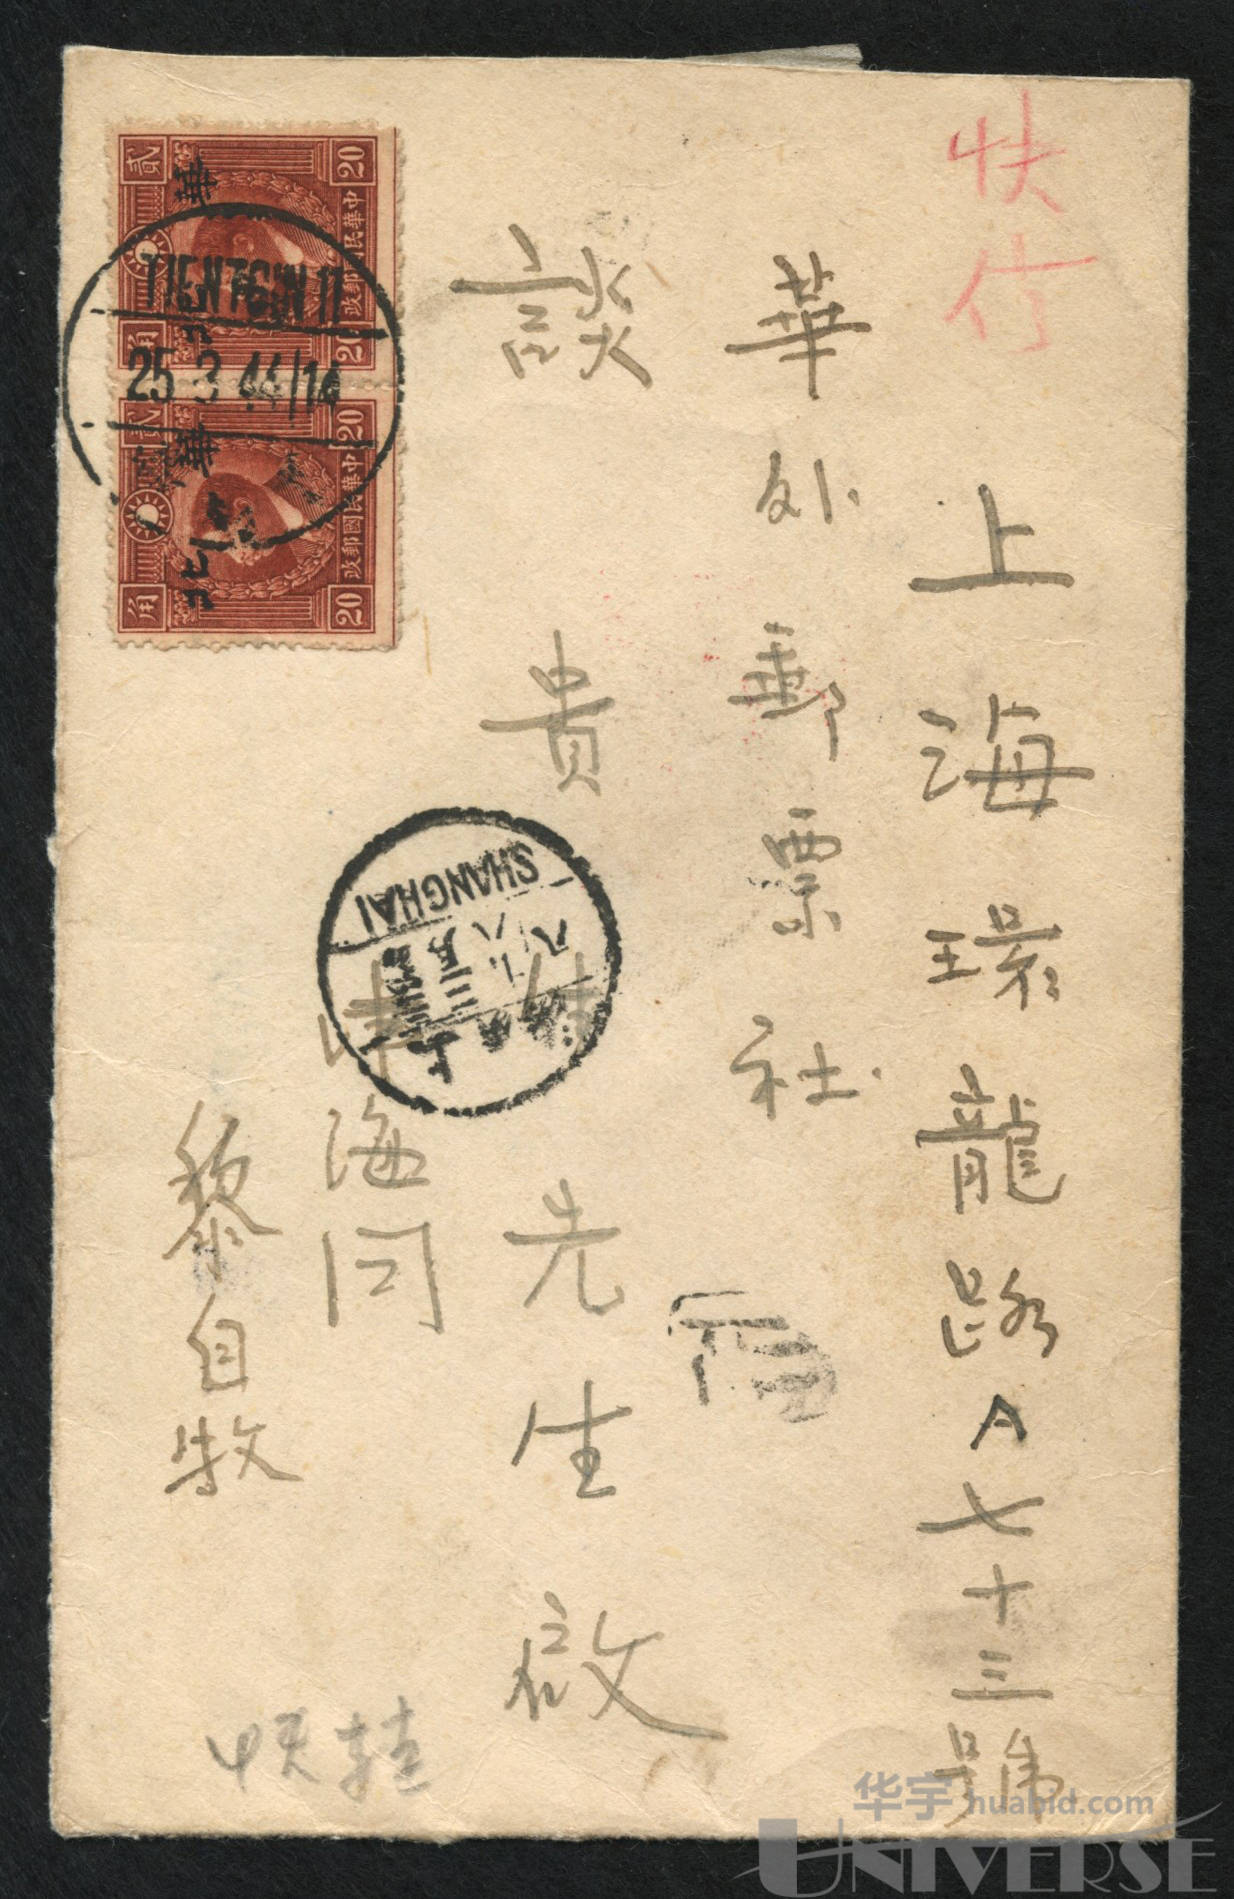 快行
上海環龍路A七十三號
華外郵票社
談貴生先生啟
津海関
黎自牧
TIENTSIN 11
25 3 44/14
SHANGHAI
上
貳角 20 中華民國郵政 20
貳角 20 中華民國郵政 20
華北
华宇 huabid.com
UNIVERSE